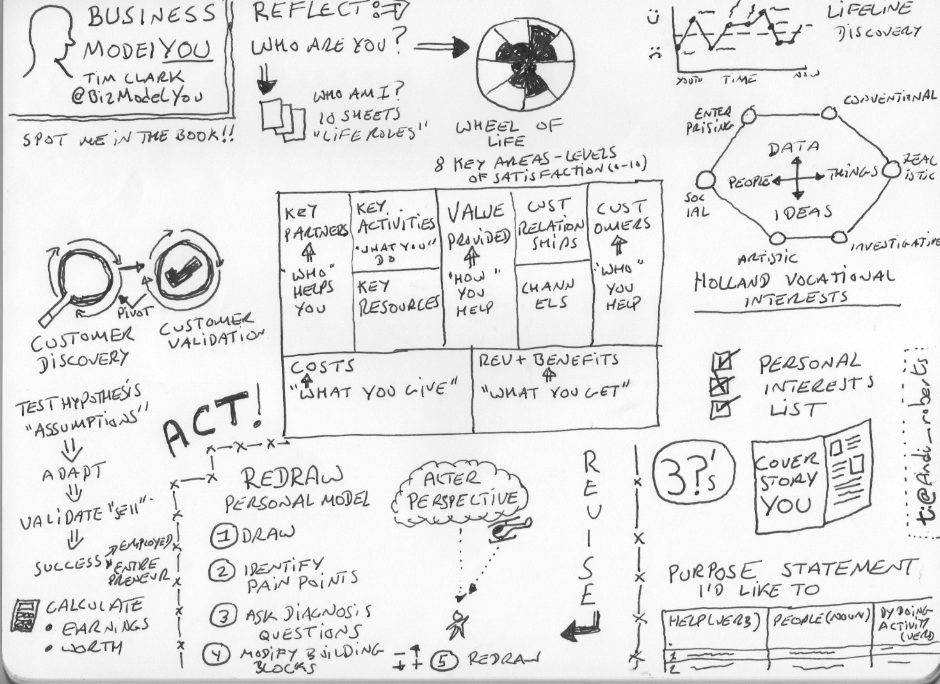 BUSINESS
MODEL YOU
TIM CLARK
@BIZMODELYOU
SPOT ME IN THE BOOK!!
REFLECT:
WHO ARE YOU?
WHO AM I?
10 SHEETS
"LIFE ROLES"
WHEEL OF
LIFE
8 KEY AREAS - LEVELS
OF SATISFACTION (0-10)
YOUTH TIME NOW
LIFELINE
DISCOVERY
ENTER
PRISING
CONVENTIONAL
DATA
PEOPLE
THINGS
IDEAS
REAL
ISTIC
SOC
IAL
ARTISTIC
INVESTIGATIVE
HOLLAND VOCATIONAL
INTERESTS
KEY
PARTNERS
"WHO"
HELPS
YOU
KEY
ACTIVITIES
"WHAT YOU"
DO
KEY
RESOURCES
VALUE
PROVIDED
"HOW"
YOU
HELP
CUST
RELATION
SHIPS
CHANN
ELS
CUST
OMERS
"WHO"
YOU
HELP
COSTS
"WHAT YOU GIVE"
REV + BENEFITS
"WHAT YOU GET"
PIVOT
CUSTOMER
DISCOVERY
CUSTOMER
VALIDATION
TEST HYPOTHESIS
"ASSUMPTIONS"
ADAPT
VALIDATE "SELL"
SUCCESS
EMPLOYED
ENTRE
PRENEUR
CALCULATE
• EARNINGS
• WORTH
ACT!
REDRAW
PERSONAL MODEL
1 DRAW
2 IDENTIFY
PAIN POINTS
3 ASK DIAGNOSIS
QUESTIONS
4 MODIFY BUILDING
BLOCKS
- + 5 REDRAW
ALTER
PERSPECTIVE
REVISE
PERSONAL
INTERESTS
LIST
3?'s
COVER
STORY
YOU
@Andi_roberts
PURPOSE STATEMENT
I'D LIKE TO
HELP (VERB)
PEOPLE (NOUN)
BY DOING
ACTIVITY
(VERB)
1
2